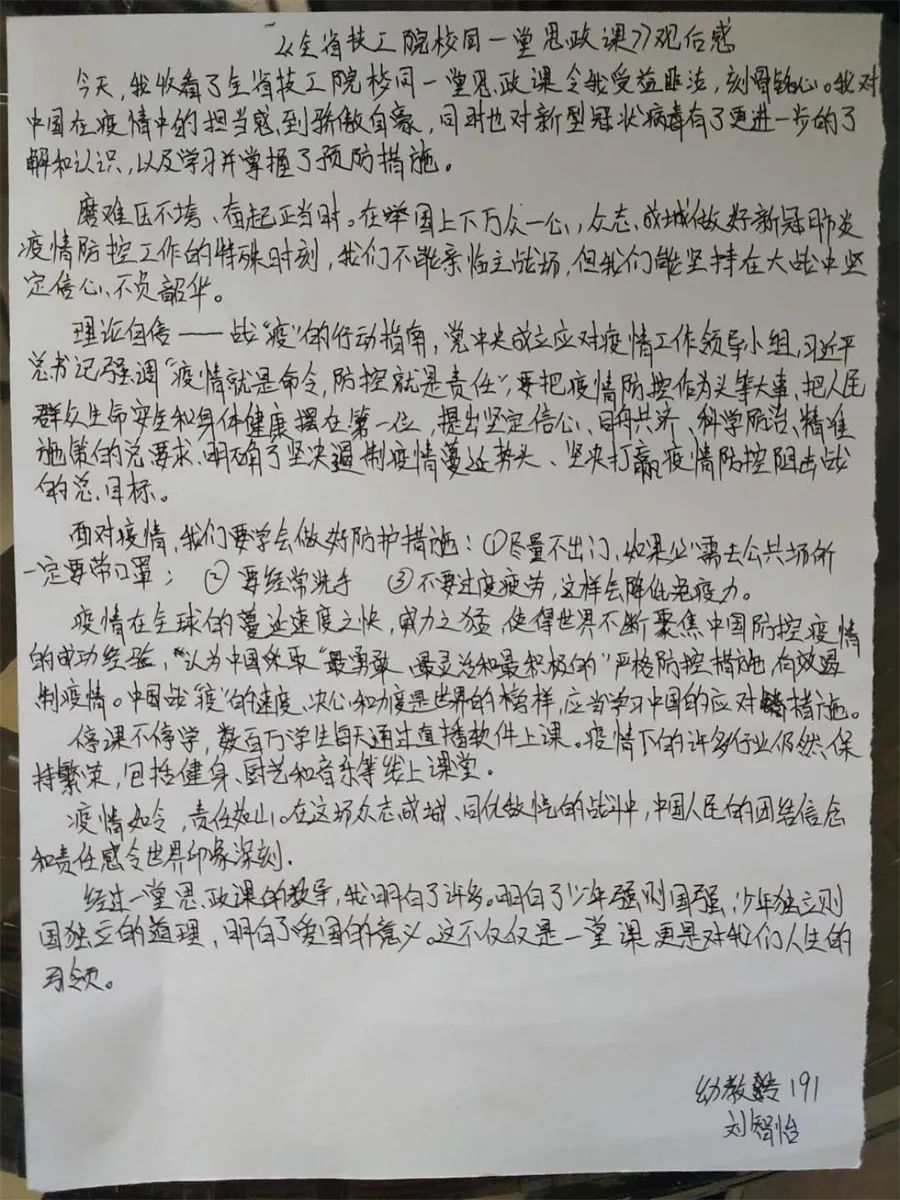 《全省技工院校同一堂思政课》观后感
今天,我收看了全省技工院校同一堂思政课令我受益匪浅,刻骨铭心。我对
中国在疫情中的担当感到骄傲自豪,同时也对新型冠状病毒有了更进一步的了
解和认识,以及学习并掌握了预防措施。
磨难压不垮、奋起正当时。在举国上下万众一心、众志成城做好新冠肺炎
疫情防控工作的特殊时刻,我们不能亲临主战场,但我们能坚持在大战中坚
定信心、不负韶华。
理论自信——战“疫”的行动指南,党中央成立应对疫情工作领导小组,习近平
总书记强调“疫情就是命令,防控就是责任”,要把疫情防控作为头等大事、把人民
群众生命安全和身体健康摆在第一位,提出坚定信心、同舟共济、科学防治、精准
施策的总要求、明确了坚决遏制疫情蔓延势头、坚决打赢疫情防控阻击战
的总目标。
面对疫情,我们要学会做好防护措施:①尽量不出门,如果必需去公共场所
一定要带口罩; ②要经常洗手 ③不要过度疲劳,这样会降低免疫力。
疫情在全球的蔓延速度之快,威力之猛,使得世界不断聚焦中国防控疫情
的成功经验,认为中国采取“最勇敢、最灵活和最积极的”严格防控措施,有效遏
制疫情。中国战“疫”的速度、决心和力度是世界的榜样,应当学习中国的应对措施。
停课不停学,数百万学生每天通过直播软件上课。疫情下的许多行业仍然保
持繁荣,包括健身、厨艺和音乐等线上课堂。
疫情如令,责任如山。在这场众志成城、同仇敌忾的战斗中,中国人民的团结信念
和责任感令世界印象深刻.
经过一堂思政课的教导,我明白了许多。明白了少年强则国强,少年独立则
国独立的道理,明白了爱国的意义。这不仅仅是一堂课,更是对我们人生的
引领。
幼教专191
刘智怡